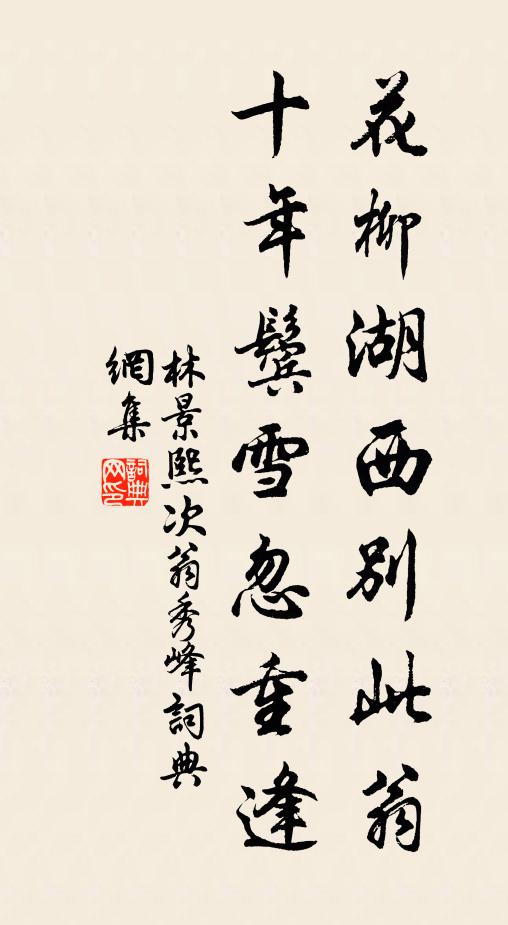 花柳湖西別此翁
十年鬓雪忽重逢
林景熙次翁秀峰詞典
網集
詞典
网印